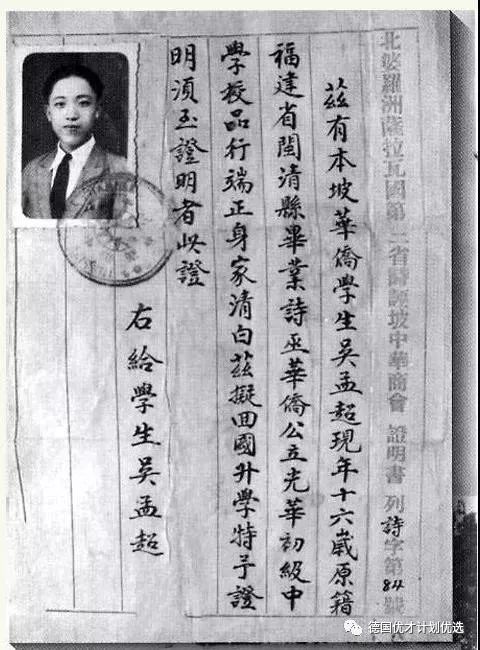 北婆羅洲薩拉瓦國第二省詩巫坡中華商會 證明書 列詩字第84號
茲有本坡華僑學生吳孟超現年十六歲原籍
福建省閩清縣畢業詩巫華僑公立光華初級中
學校品行端正身家清白茲擬回國升學特予證
明須至證明者此證
右給學生吳孟超
德国优才计划优选